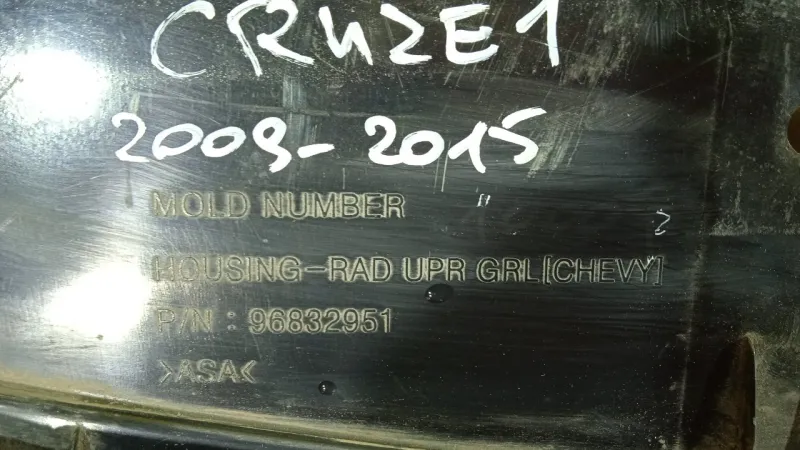 CRUZE 1
2009-2015
MOLD NUMBER
HOUSING-RAD UPR GRL[CHEVY]
P/N : 96832951
>ASA<